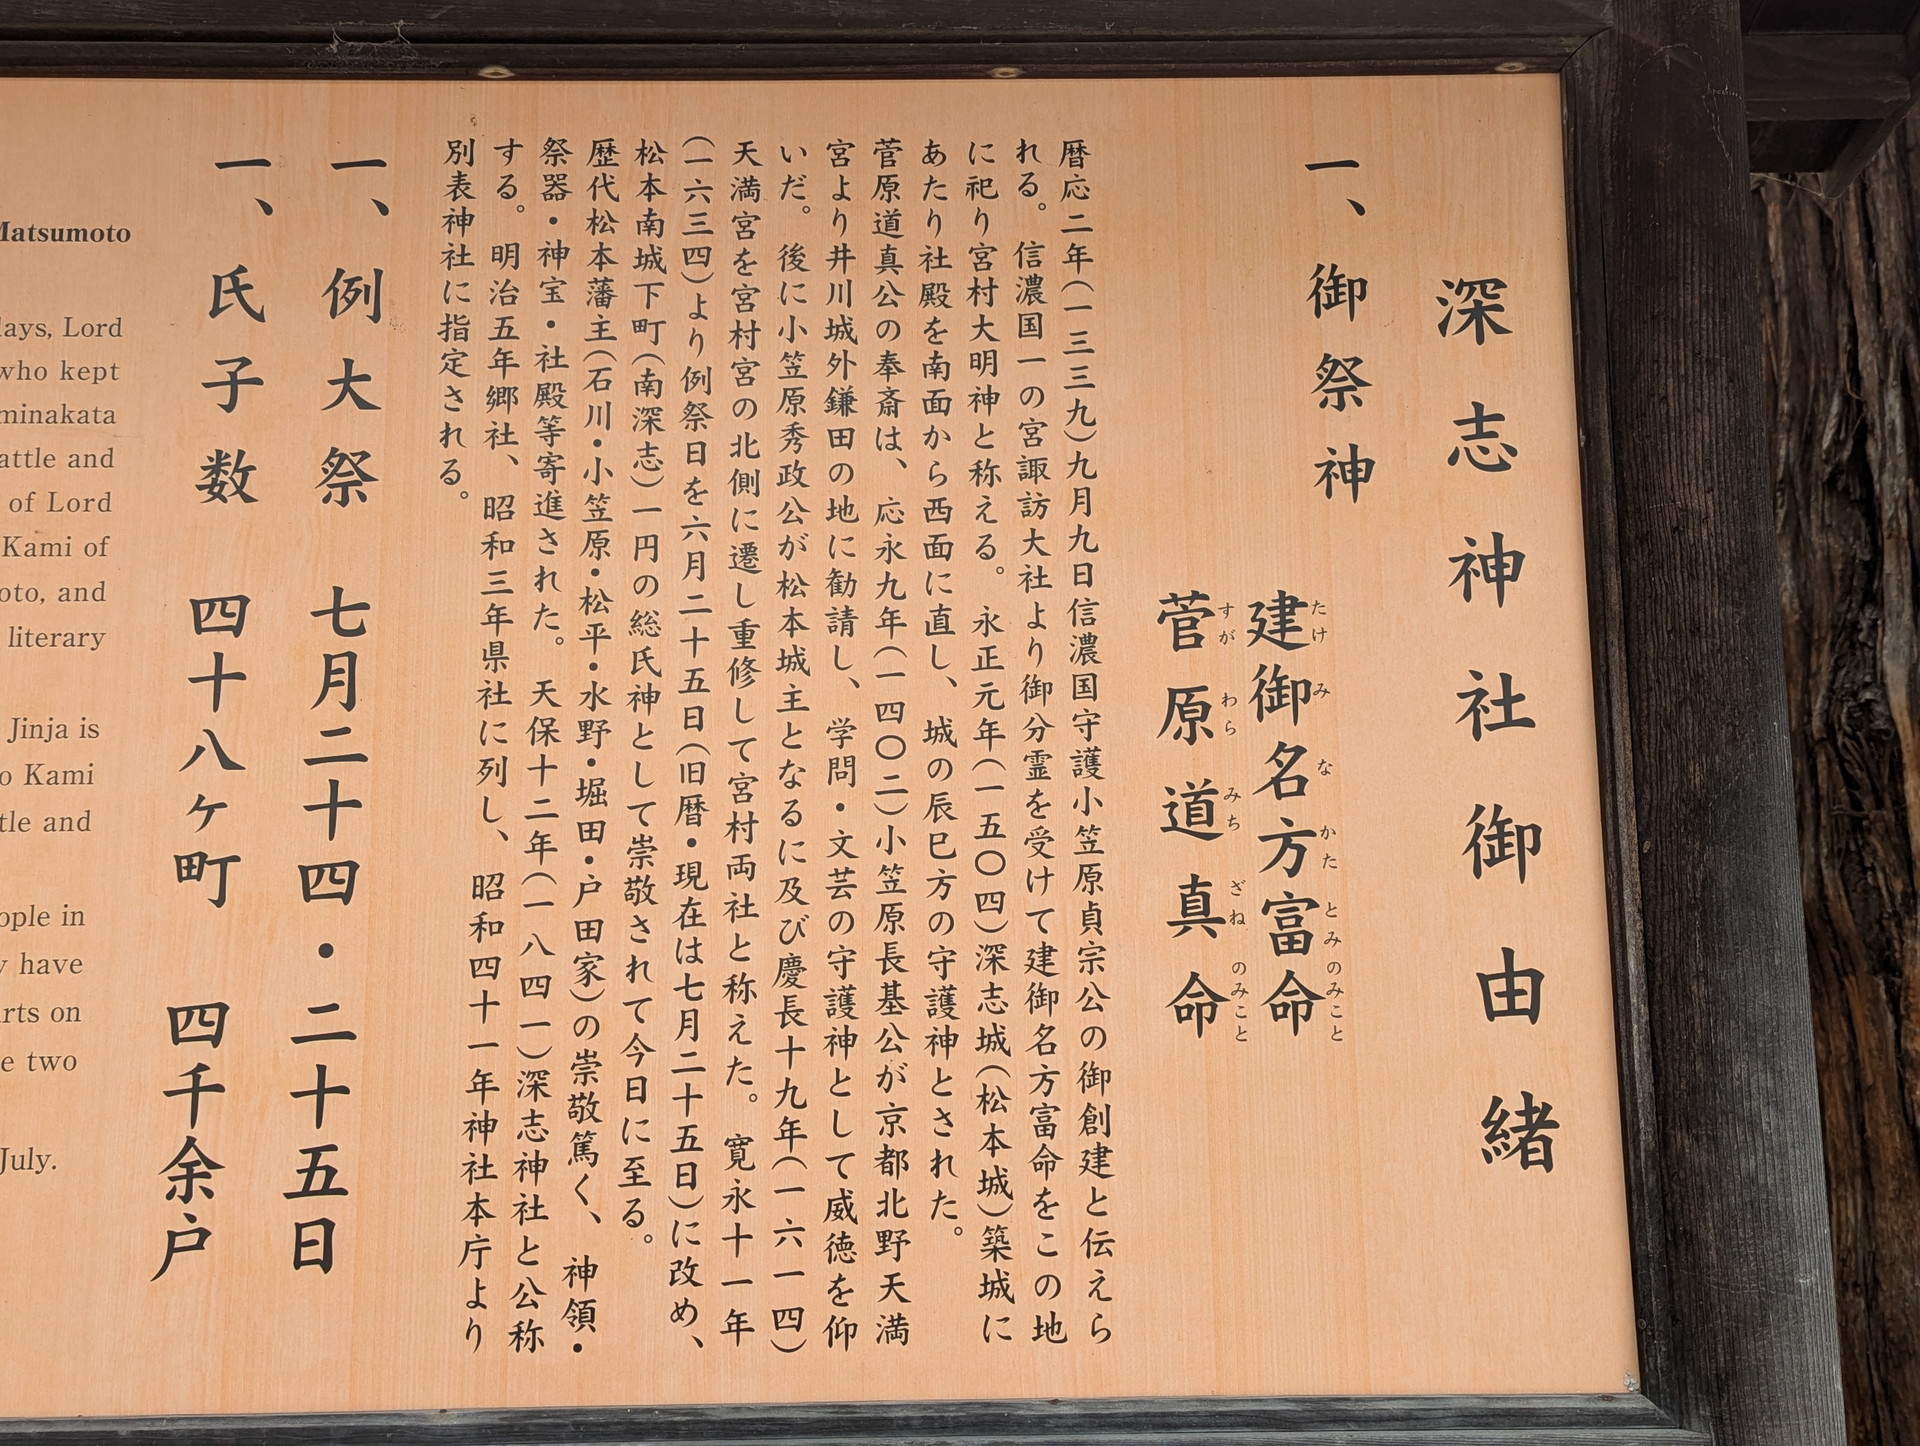 深志神社御由緒
一、御祭神
建御名方富命
たけみなかたとみのみこと
菅原道真命
すがわらみちざねのみこと
暦応二年(一三三九)九月九日信濃国守護小笠原貞宗公の御創建と伝えら
れる。信濃国一の宮諏訪大社より御分霊を受けて建御名方富命をこの地
に祀り宮村大明神と称える。永正元年(一五〇四)深志城(松本城)築城に
あたり社殿を南面から西面に直し、城の辰巳方の守護神とされた。
菅原道真公の奉斎は、応永九年(一四〇二)小笠原長基公が京都北野天満
宮より井川城外鎌田の地に勧請し、学問・文芸の守護神として威徳を仰
いだ。後に小笠原秀政公が松本城主となるに及び慶長十九年(一六一四)
天満宮を宮村宮の北側に遷し重修して宮村両社と称えた。寛永十一年
(一六三四)より例祭日を六月二十五日(旧暦・現在は七月二十五日)に改め、
松本南城下町(南深志)一円の総氏神として崇敬されて今日に至る。
歴代松本藩主(石川・小笠原・松平・水野・堀田・戸田家)の崇敬篤く、神領・
祭器・神宝・社殿等寄進された。天保十二年(一八四一)深志神社と公称
する。明治五年郷社、昭和三年県社に列し、昭和四十一年神社本庁より
別表神社に指定される。
一、例大祭 七月二十四・二十五日
一、氏子数 四十八ヶ町 四千余戸
Matsumoto
days, Lord
who kept
minakata
attle and
of Lord
Kami of
oto, and
literary
Jinja is
o Kami
tle and
ople in
y have
rts on
e two
July.